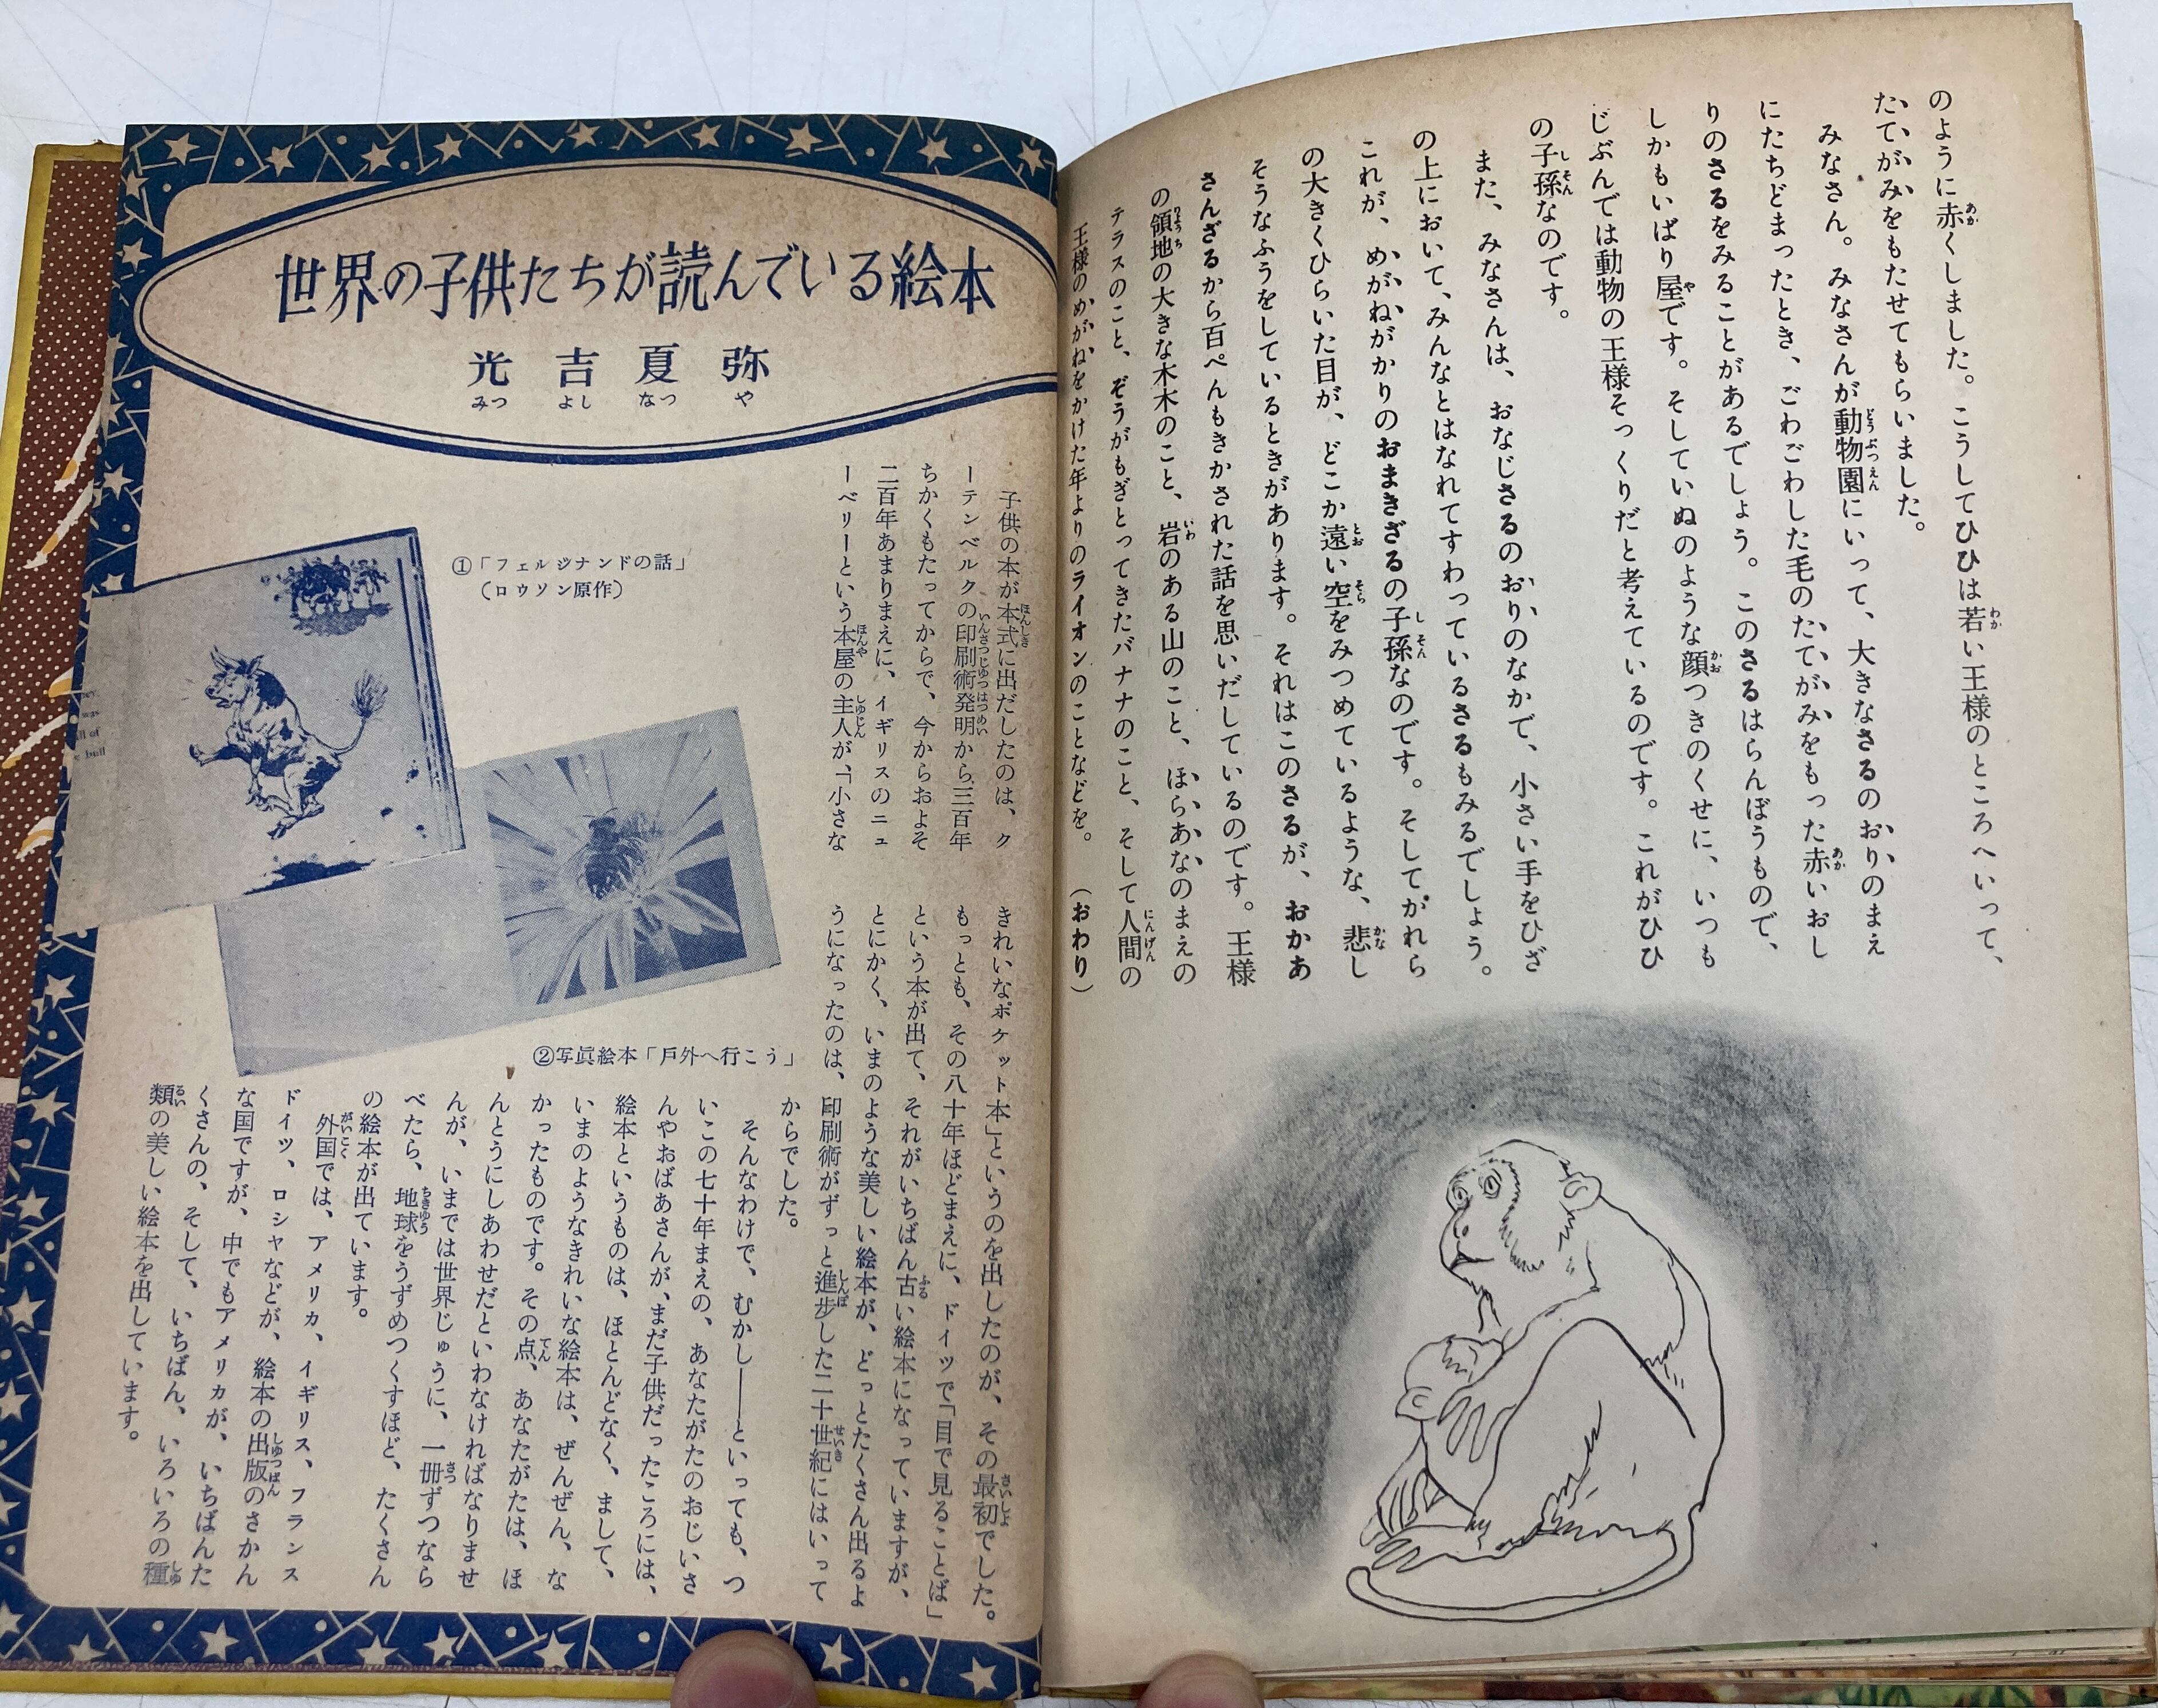 のように赤くしました。こうしてひひは若い王様のところへいって、
たてがみをもたせてもらいました。
みなさん。みなさんが動物園にいって、大きなさるのおりのまえ
にたちどまったとき、ごわごわした毛のたてがみをもった赤いおし
りのさるをみることがあるでしょう。このさるはらんぼうもので、
しかもいばり屋です。そしていぬのような顔つきのくせに、いつも
じぶんでは動物の王様そっくりだと考えているのです。これがひひ
の子孫なのです。
また、みなさんは、おなじさるのおりのなかで、小さい手をひざ
の上において、みんなとはなれてすわっているさるもみるでしょう。
これが、めがねがかりのおまきざるの子孫なのです。そしてがれら
の大きくひらいた目が、どこか遠い空をみつめているような、悲し
そうなふうをしているときがあります。それはこのさるが、おかあ
さんざるから百ぺんもきかされた話を思いだしているのです。王様
の領地の大きな木木のこと、岩のある山のこと、ほらあなのまえの
テラスのこと、ぞうがもぎとってきたバナナのこと、そして人間の
王様のめがねをかけた年よりのライオンのことなどを。　（おわり）
世界の子供たちが読んでいる絵本
光吉夏弥
みつ よし なつ や
①「フェルジナンドの話」
（ロウソン原作）
②写眞絵本「戸外へ行こう」
子供の本が本式に出だしたのは、ク
ーテンベルクの印刷術発明から三百年
ちかくもたってからで、今からおよそ
二百年あまりまえに、イギリスのニュ
ーベリーという本屋の主人が、「小さな
きれいなポケット本」というのを出したのが、その最初でした。
もっとも、その八十年ほどまえに、ドイツで「目で見ることば」
という本が出て、それがいちばん古い絵本になっていますが、
とにかく、いまのような美しい絵本が、どっとたくさん出るよ
うになったのは、印刷術がずっと進歩した二十世紀にはいって
からでした。
そんなわけで、むかし――といっても、つ
いこの七十年まえの、あなたがたのおじいさ
んやおばあさんが、まだ子供だったころには、
絵本というものは、ほとんどなく、まして、
いまのようなきれいな絵本は、ぜんぜん、な
かったものです。その点、あなたがたは、ほ
んとうにしあわせだといわなければなりませ
んが、いまでは世界じゅうに、一冊ずつなら
べたら、地球をうずめつくすほど、たくさん
の絵本が出ています。
外国では、アメリカ、イギリス、フランス
ドイツ、ロシヤなどが、絵本の出版のさかん
な国ですが、中でもアメリカが、いちばんた
くさんの、そして、いちばん、いろいろの種
類の美しい絵本を出しています。